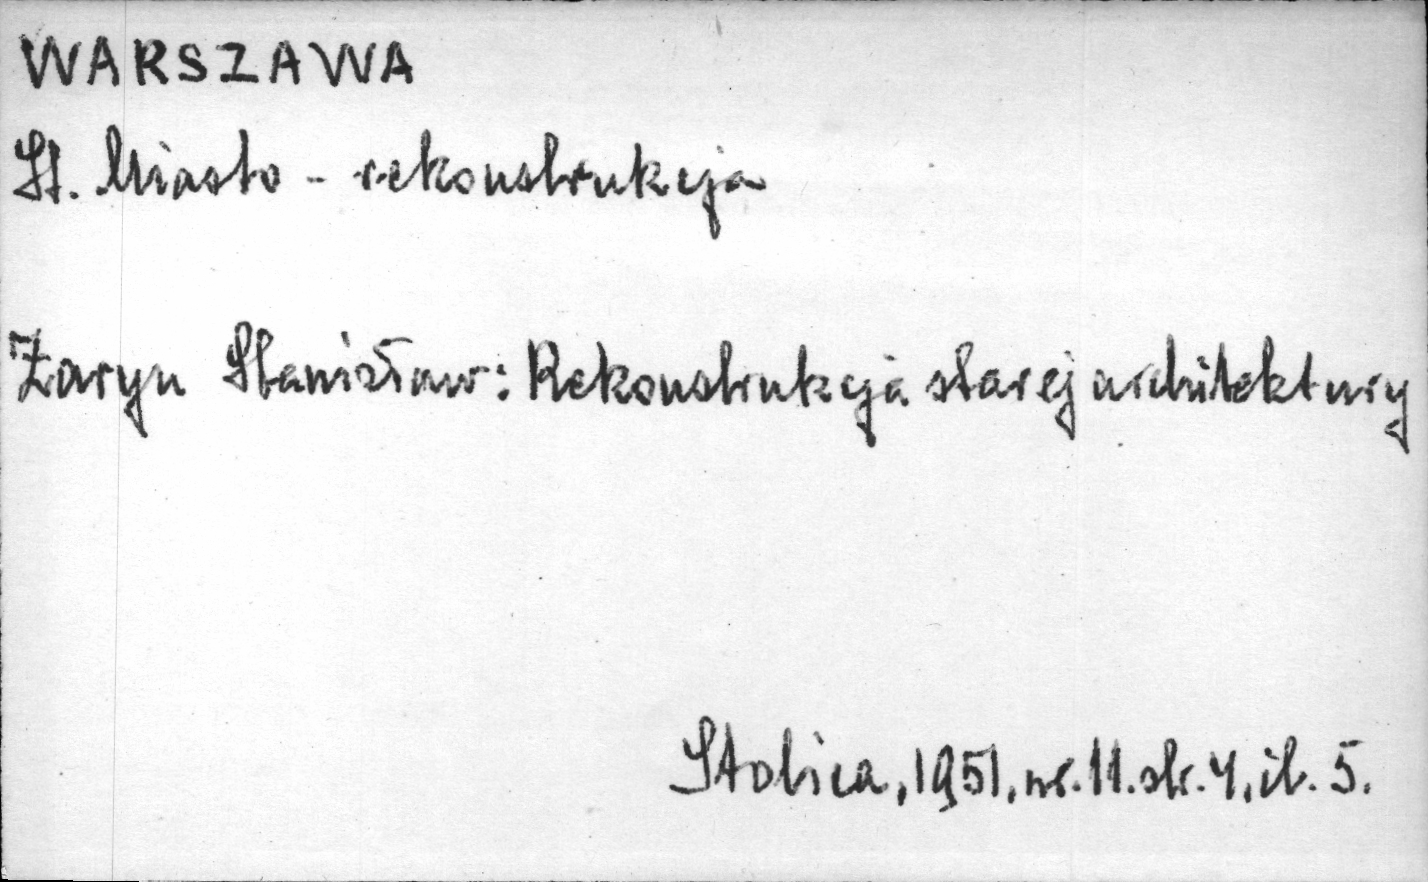 WARSZAWA
St. Miasto - rekonstrukcja
Żaryn Stanisław: Rekonstrukcja starej architektury
Stolica, 1951, nr. 11. str. 4, il. 5.